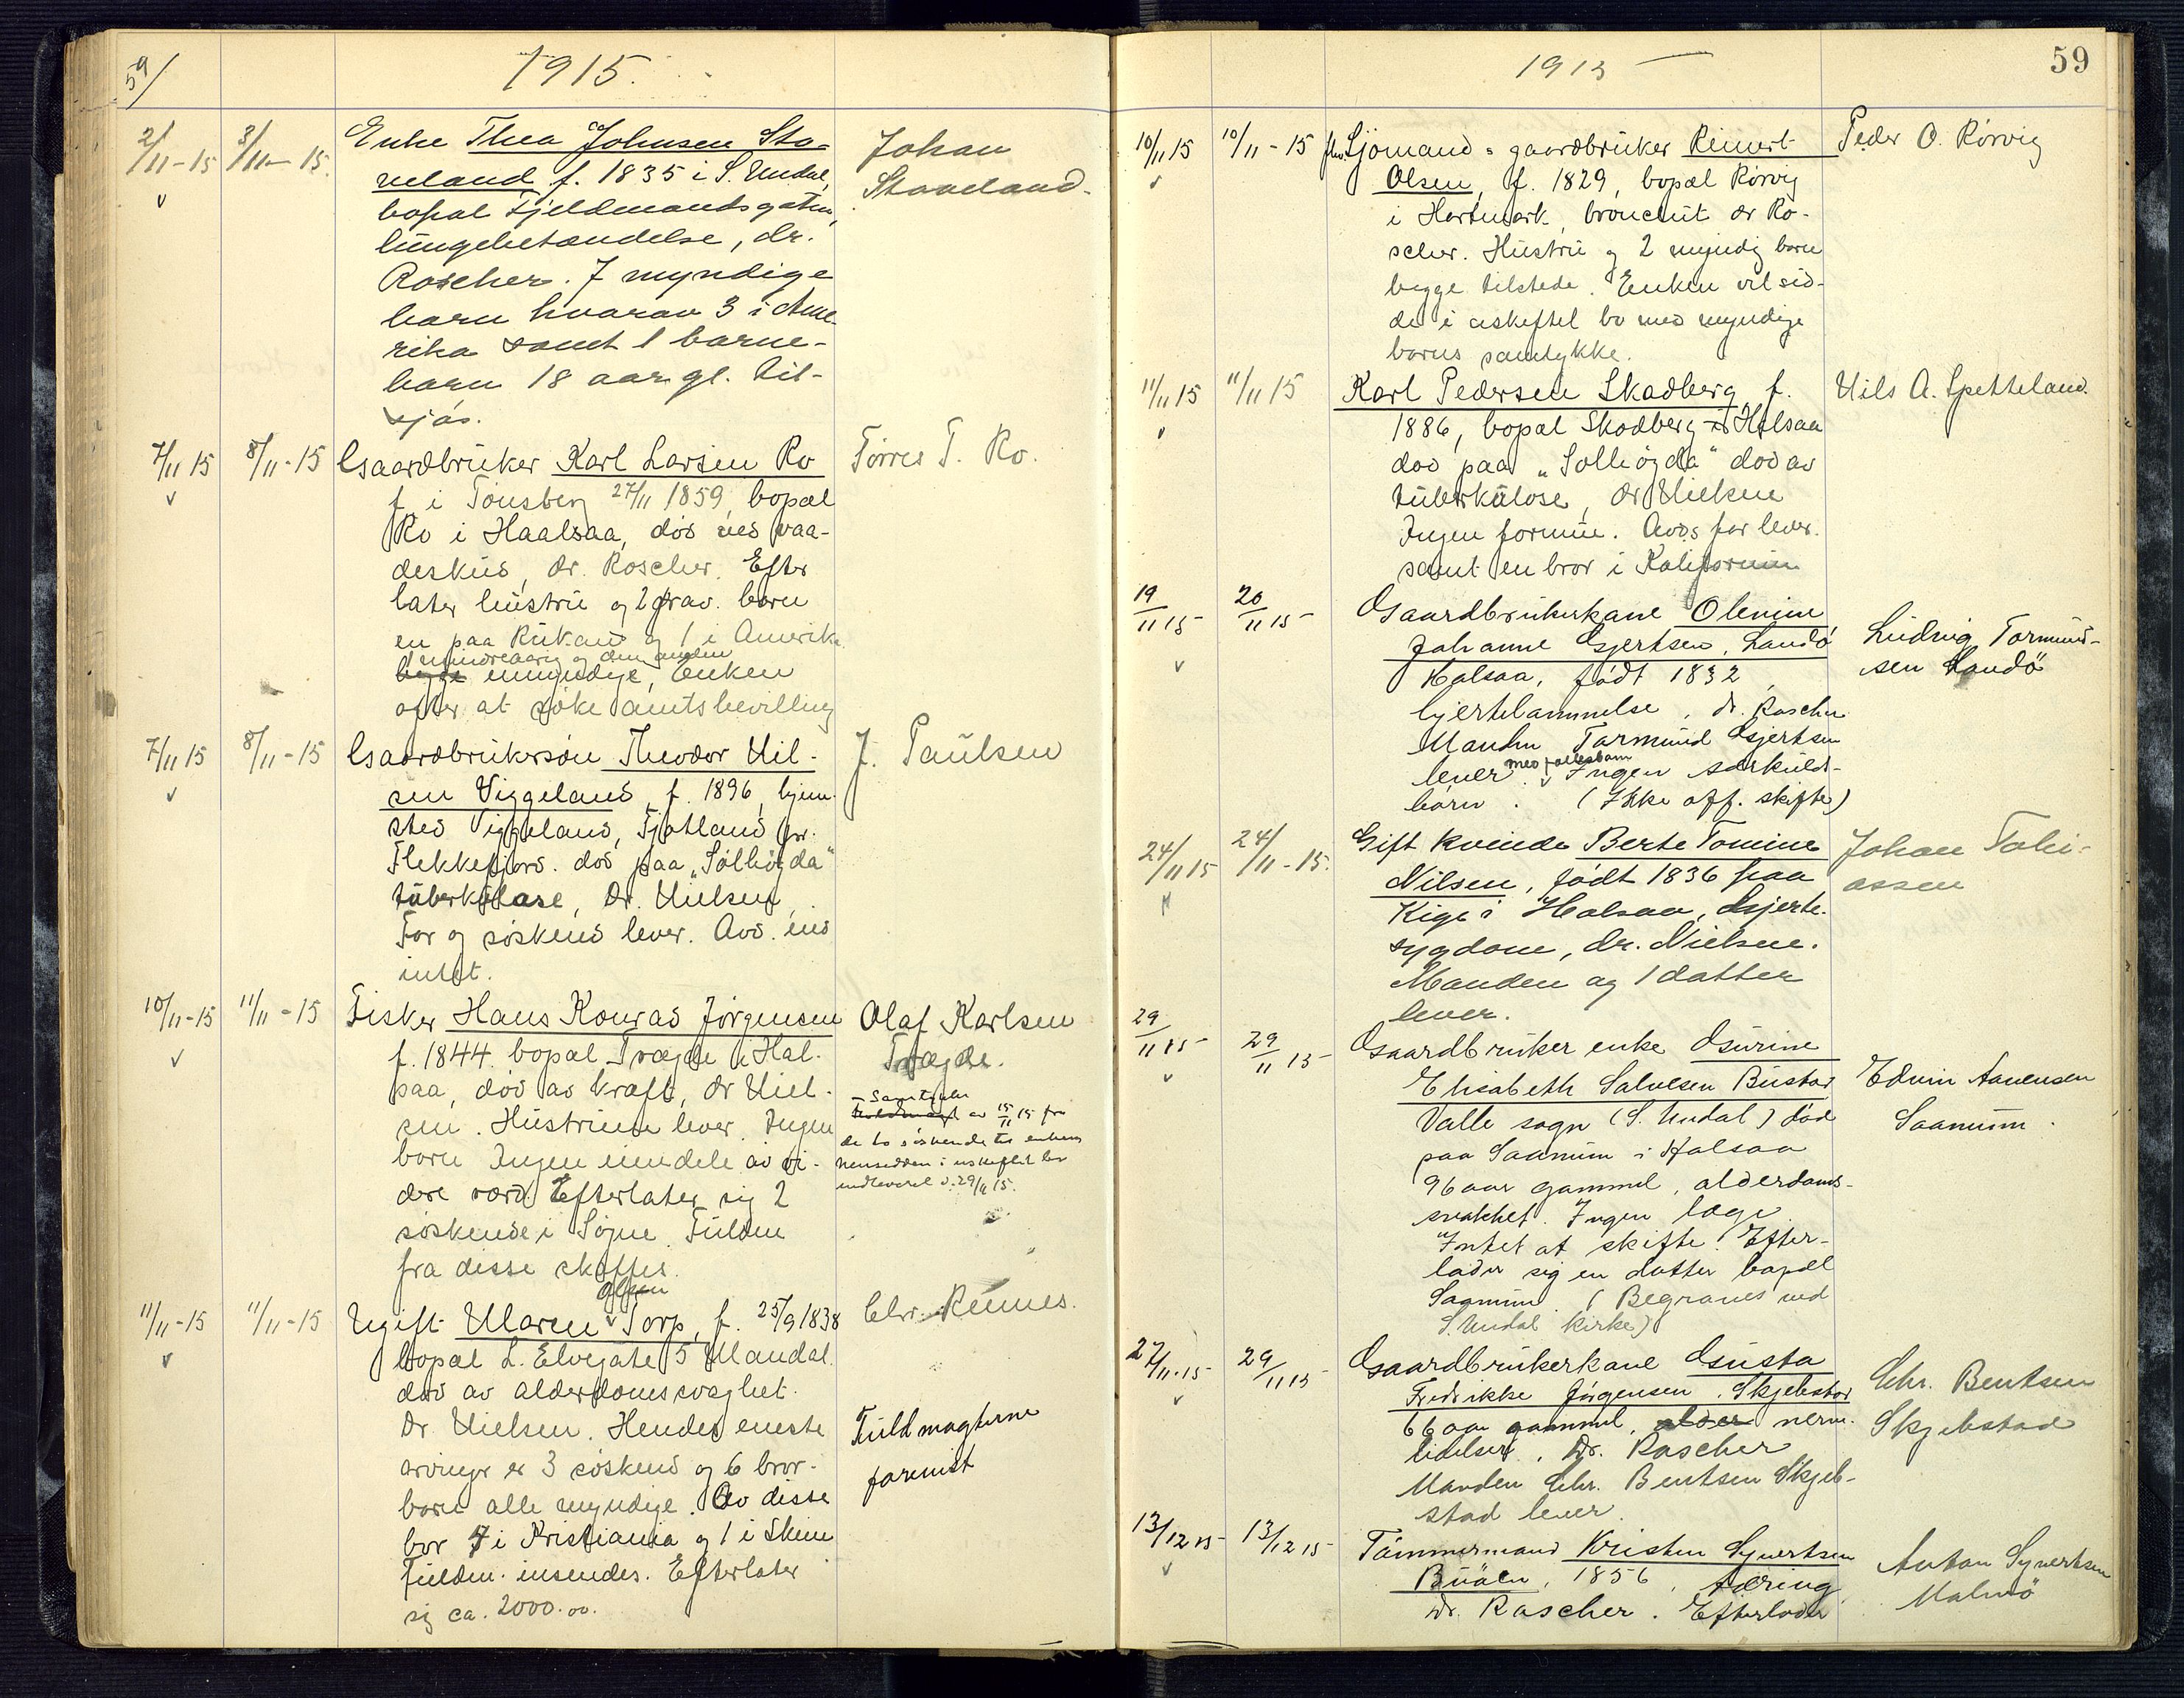 59/
1915.
2/11-15 3/11-15. Enke Thea Johnsen Sta-
neland f. 1835 i S. Undal,
bopæl Fjeldmandsgaten,
lungebetændelse, dr.
Roscher. 7 myndige
barn hvorav 3 i Ame-
rika samt 1 barne-
barn 18 aar gl. til-
sjøs.
Johan
Staneland.
7/11 15 8/11-15 Gaardbruker Karl Larsen Ro
f. i Tønsberg 27/11 1859, bopæl
Ro i Haalsaa, død ved vaa-
deskud, Dr. Roscher. Efter
later hustru og 2 barn
en paa Rukan og 1 i Amerika
1 mindreaarig og den anden
begge umyndige, Enken
agter at søke amtsbevilling
Tørres T. Ro.
7/11 15 8/11-15 Gaardbrukersøn Theodor Nil-
sen Viggeland, f. 1896, hjem-
sted Viggeland, Fjotland pr.
Flekkefjord. død paa "Solhøgda"
tuberkulose, Dr. Nielsen,
Far og søskend lever. Avd. eied
intet.
J. Paulsen
10/11-15 11/11-15 Fisker Hans Konrad Jørgensen
f. 1844. bopæl Tregde i Hal-
saa, død av kræft, Dr Niel-
sen. Hustruen lever. Ingen
barn Ingen eiendele av vi-
dere værd. Efterlater sig 2
søskende i Søgne. Fuldm
fra disse skaffes.
Olaf Karlsen
Tregde.
- Samtykke
av 15/11 15 fra
de to søskende til enkens
hensidden i uskiftet bo
indleveret d. 29/11 15.
11/11-15 11/11-15 Ugift Maren Olsen Torp, f. 25/9 1838
bopæl L. Elvegate 5 Mandal.
død av alderdomssvaghet.
Dr Nielsen. Hendes eneste
arvinger er 3 søskend og 6 bror-
barn alle myndige. Av disse
bor 7 i Kristiania og 1 i Skien
Fuldm. insendes. Efterlater
sig ca. 2000.00.
Chr. Reimes.
Fuldmagterne
forevist
59
1915
10/11 15 10/11-15 fhv. Sjømand & gaardbruker Reinert
Olsen, f. 1829, bopæl Rørvig
i Hartmark, bronchit dr Ro-
scher. Hustru og 2 myndig barn
begge tilstede. Enken vil sid-
de i uskiftet bo med myndige
barns samtykke.
Peder O. Rørvig
11/11 15 11/11 15 Karl Pedersen Skadberg, f.
1886, bopæl Skodberg i Halsaa
død paa "Solhøgda" død av
tuberkulose, dr Nielsen
Ingen formue. Avds far lever.
samt en bror i Kalifornien
Nils A. Spetteland.
19/11 15 20/11 15 Gaardbrukerkone Olenine
Johanne Gjertsen, Landø
Halsaa, født 1832,
hjertelammelse, dr. Roscher
Manden Tarmund Gjertsen
lever med fællesbarn. Ingen særkuld-
børn. (Ikke off. skifte)
Ludvig Tormund-
sen Landø
24/11 15 24/11-15. Gift kvinde Berte Tomine
Nilsen, født 1836 paa
Kige i Halsaa, Hjerte-
sygdom, dr. Nielsen.
Manden og 1 datter
lever.
Johan Tobi-
assen
29/11 15 29/11 15 Gaardbruker enke Gurine
Elisabeth Salvesen Bustad
Valle sogn (S. Undal) død
paa Saanum i Halsaa
96 aar gammel, alderdoms-
svakhet. Ingen læge
Intet at skifte. Efter-
lader sig en datter bopæl
Saanum. (Begraves ved
S. Undal kirke)
Edvin Aanensen
Saanum.
27/11-15 29/11 15 Gaardbrukerkone Gusta
Fredrikke Jørgensen, Skjebstad
66 aar gammel, alder nerve-
lidelser, Dr. Roscher
Manden Chr. Bentsen Skjeb-
stad lever.
Chr. Bentsen
Skjebstad
13/12 15 13/12 15 Tømmermand Kristen Syvertsen
Buøen, 1856, tæring,
Dr. Roscher. Efterlader
Anton Syvertsen
Malmø